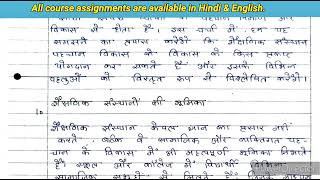 All course assignments are available in Hindi & English.
विकास में होता है। इस चर्चा में, हम यह
समझने का प्रयास करेंगे कि शैक्षणिक संस्थान
पहचान के विकास में किस प्रकार
योगदान कर सकते हैं और इसके विभिन्न
पहलुओं को विस्तृत रूप से विश्लेषित करेंगे।
शैक्षणिक संस्थानों की भूमिका
शैक्षणिक संस्थान केवल ज्ञान का प्रसार नहीं
करते, बल्कि वे सामाजिक और व्यक्तिगत पहचान
के विकास में भी महत्वपूर्ण भूमिका निभाते
हैं। स्कूल और कॉलेज में विद्यार्थी विभिन्न
सामाजिक